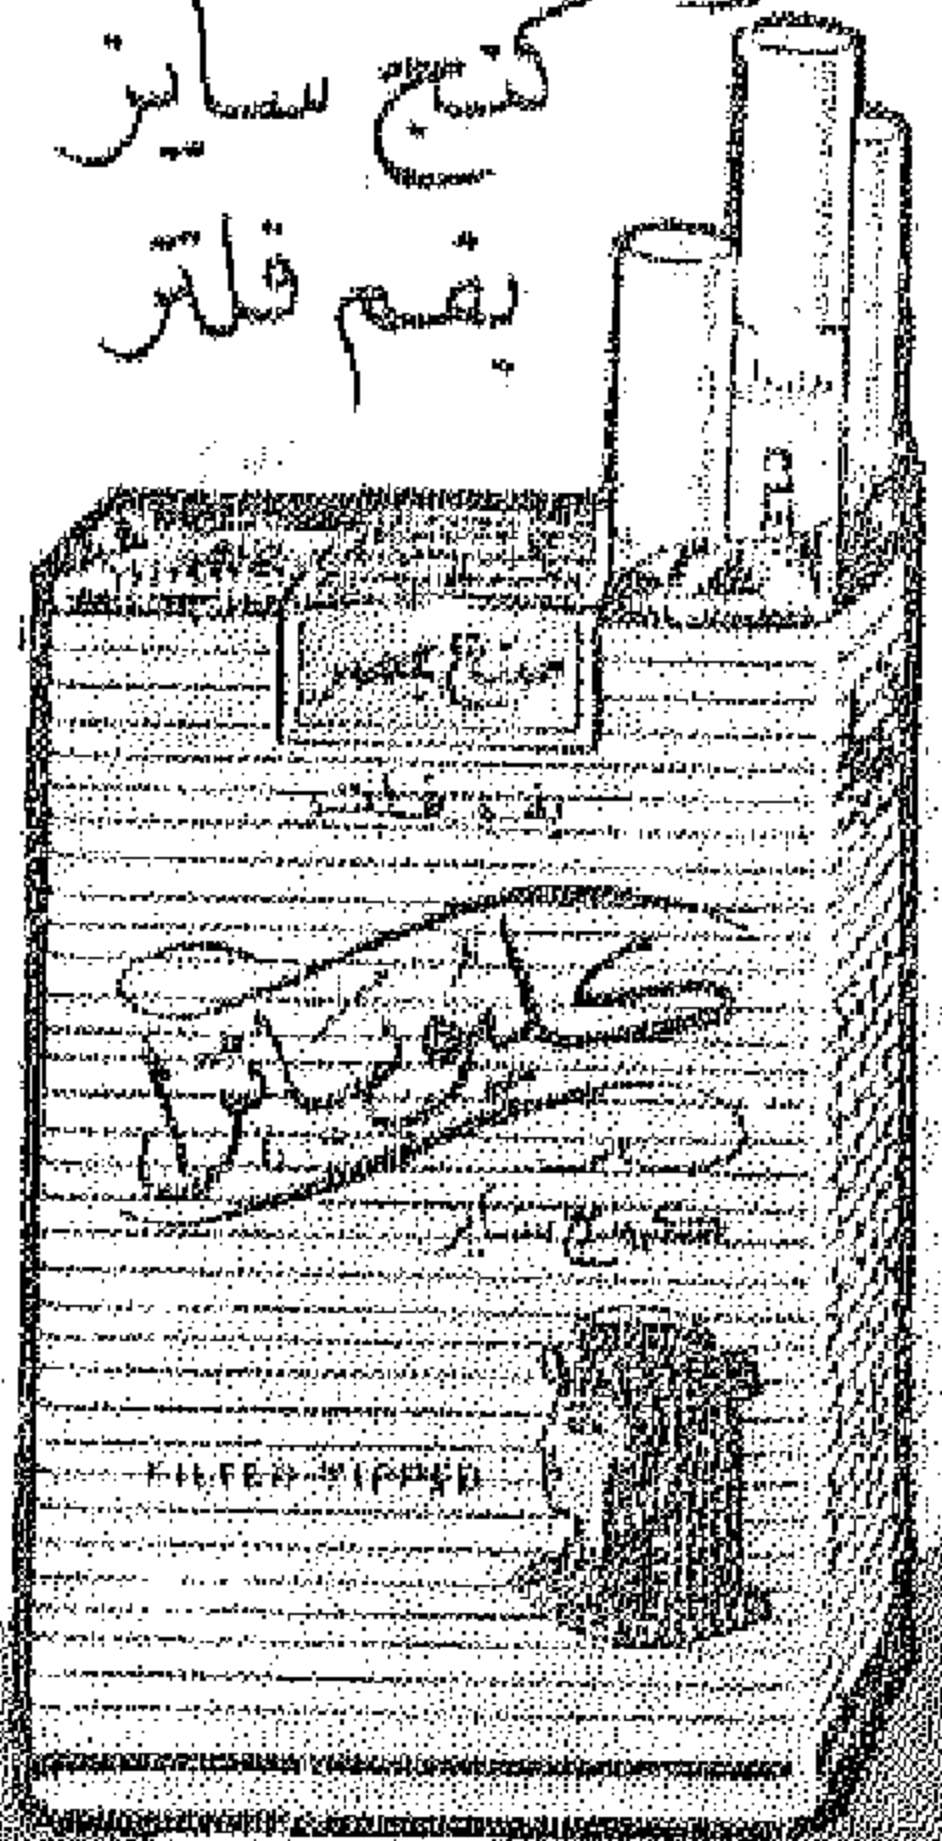 كنج سايز
بفم فلتر
بفم فلتر
كليوباترا
كنج سايز
FILTER TIPPED